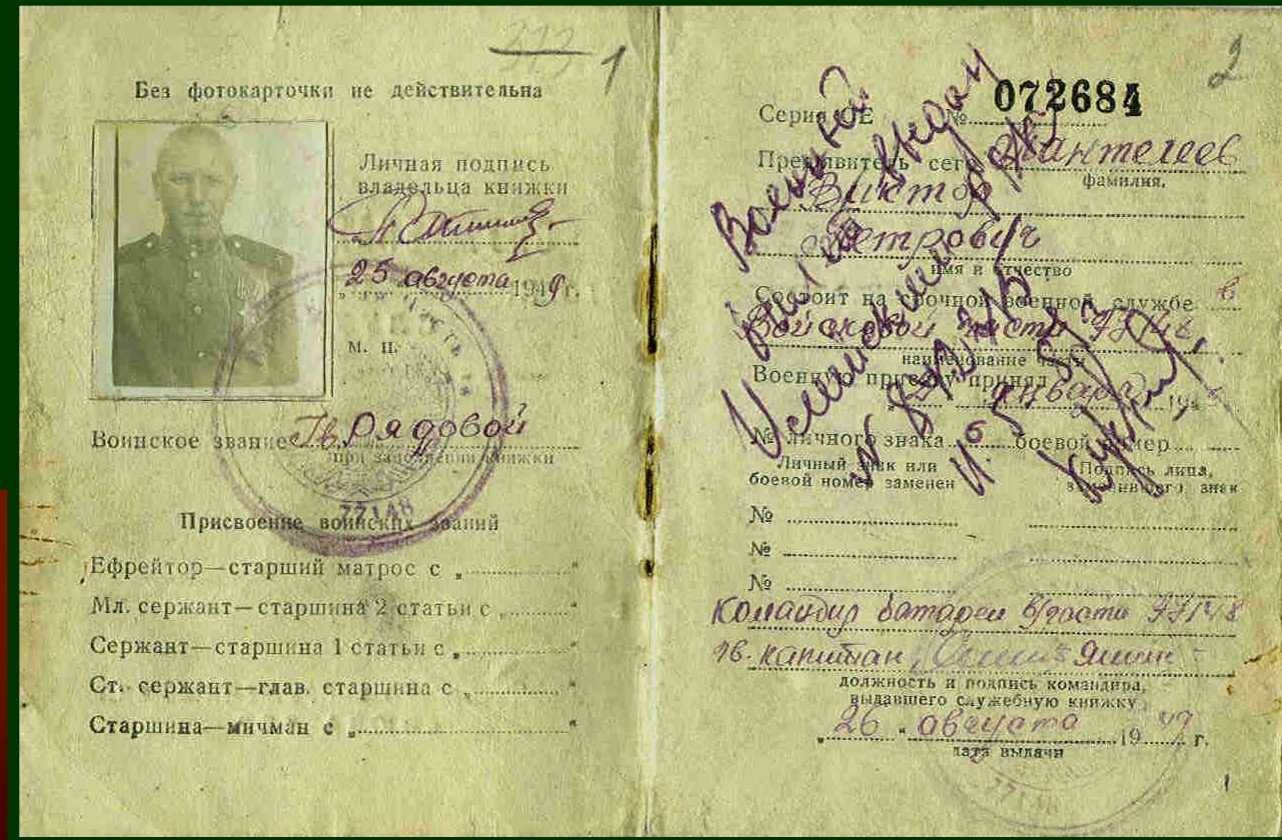 1
Без фотокарточки не действительна
Личная подпись
владельца книжки
25 августа 1949 г.
М. П.
Воинское звание Гв. Рядовой
при заполнении книжки
77148
Присвоение воинских званий
Ефрейтор—старший матрос с „ “
Мл. сержант—старшина 2 статьи с „ “
Сержант—старшина 1 статьи с „ “
Ст. сержант—глав. старшина с „ “
Старшина—мичман с „ “
2
Серия ОЕ № 072684
Предъявитель сего Пантелеев
фамилия,
Виктор
Петрович
имя и отчество
Состоит на срочной военной службе в
Войсковой части 77148
наименование части
Военную присягу принял января 194
№ личного знака боевой номер
Личный знак или
боевой номер заменен
Подпись лица,
заменившего знак
№
№
№
Командир батареи в/части 77148
гв. капитан
должность и подпись командира,
выдавшего служебную книжку
„ 26 “ августа 1949 г.
дата выдачи
77148
Военный
билет выдан